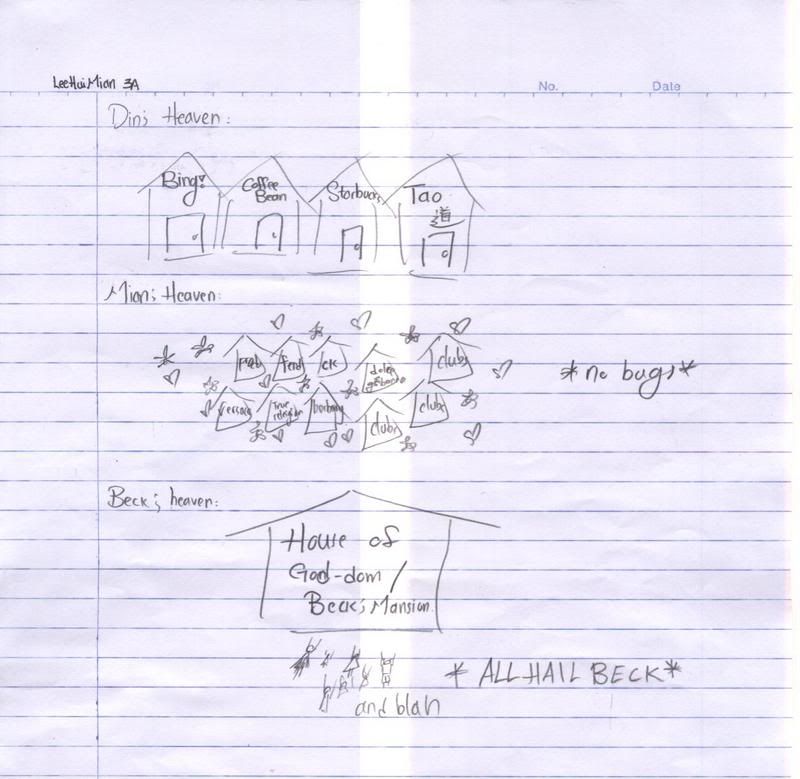 LeeHuiMian 3A
No. Date
Din's Heaven:
Bing!
Coffee
Bean
Starbucks
Tao
道
Mian's Heaven:
prada fendi ck dolce
gabbana clubs
*no bugs*
versace True
religion burberry clubs clubs
Beck's heaven:
House of
God-dom /
Beck's Mansion
* ALL HAIL BECK*
and blah